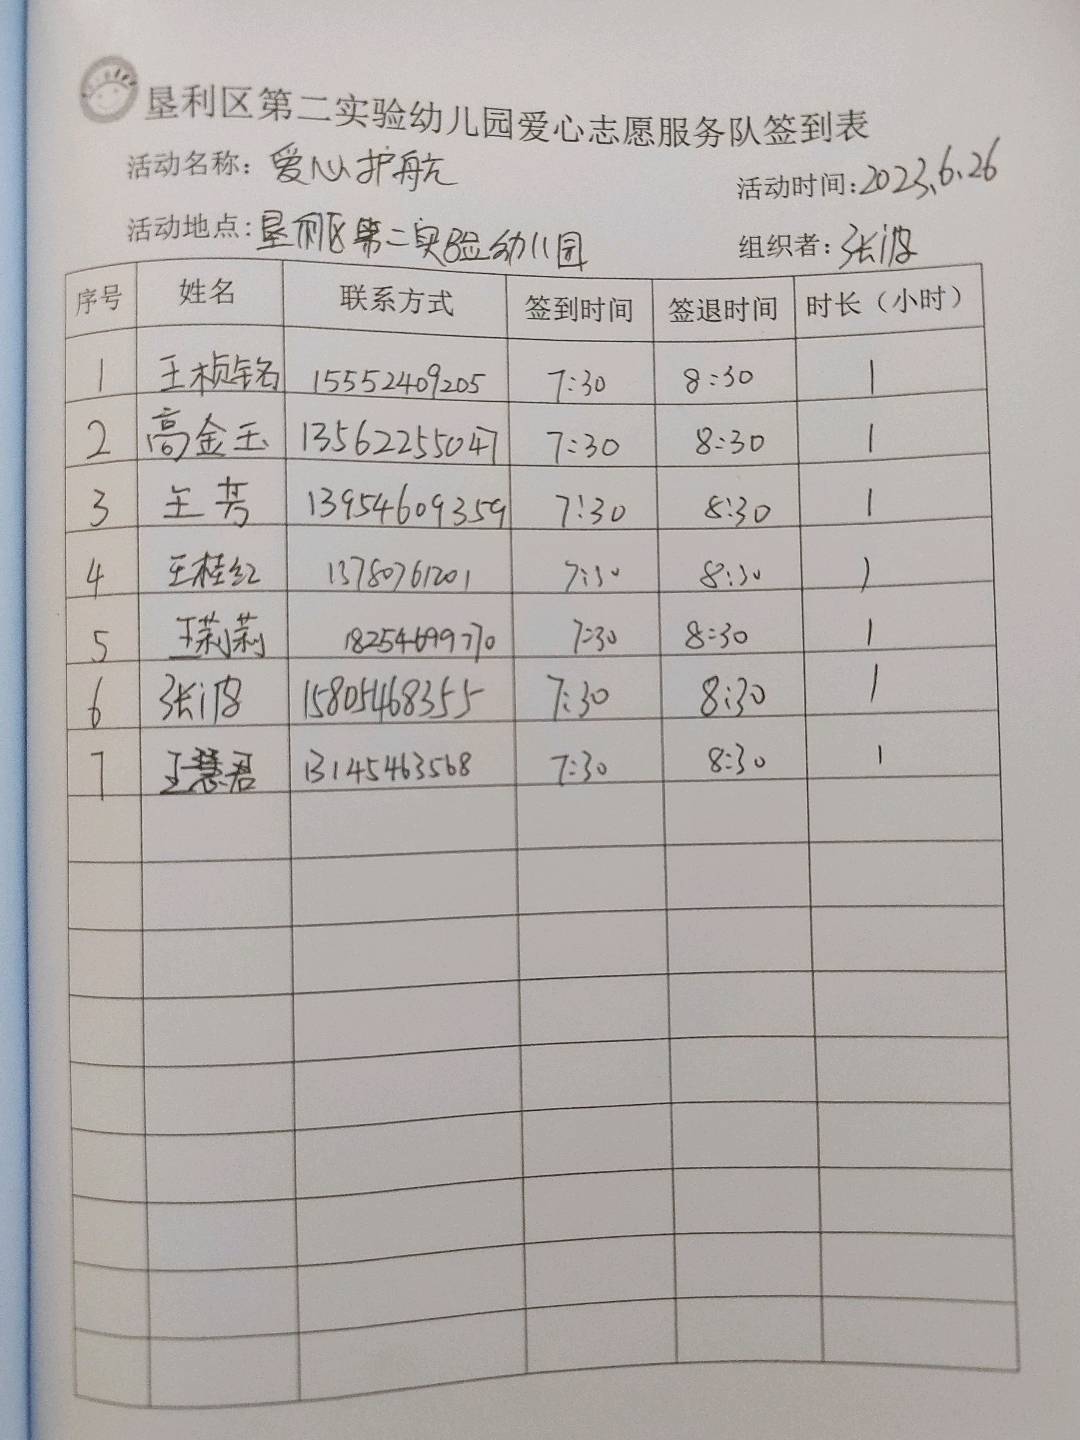 垦利区第二实验幼儿园爱心志愿服务队签到表
活动名称：爱心护航
活动时间：2023.6.26
活动地点：垦利区第二实验幼儿园
组织者：张波
序号 姓名 联系方式 签到时间 签退时间 时长（小时）
1 王桢铭 15552409205 7:30 8:30 1
2 高金玉 13562255047 7:30 8:30 1
3 王芳 13954609359 7:30 8:30 1
4 王桂红 13780761201 7:30 8:30 1
5 王莉莉 18254699770 7:30 8:30 1
6 张波 15805468355 7:30 8:30 1
7 王慧君 13145463568 7:30 8:30 1